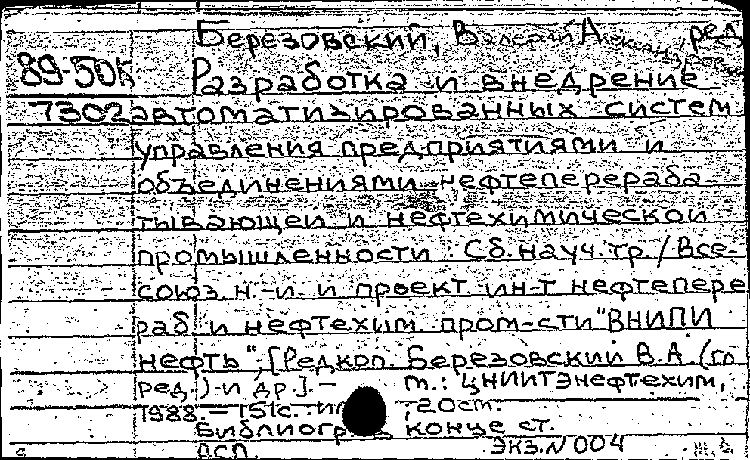 Березовский, В А , ред.
89-50к Разработка и внедрение
7302 автоматизированных систем
управления предприятиями и
объединениями нефтеперераба
тывающей и нефтехимической
промышленности : Сб. науч. тр. / Все-
союз. н.-и. и проект. ин-т нефтепере
раб. и нефтехим. пром-сти "ВНИПИ
нефть"; [Редкол. Березовский В.А. (гл.
ред.) и др.]. – М.: ЦНИИТЭнефтехим,
1988. – 151с. ; 20см.
Библиогр. в конце ст.
ДСП. Экз. N 004